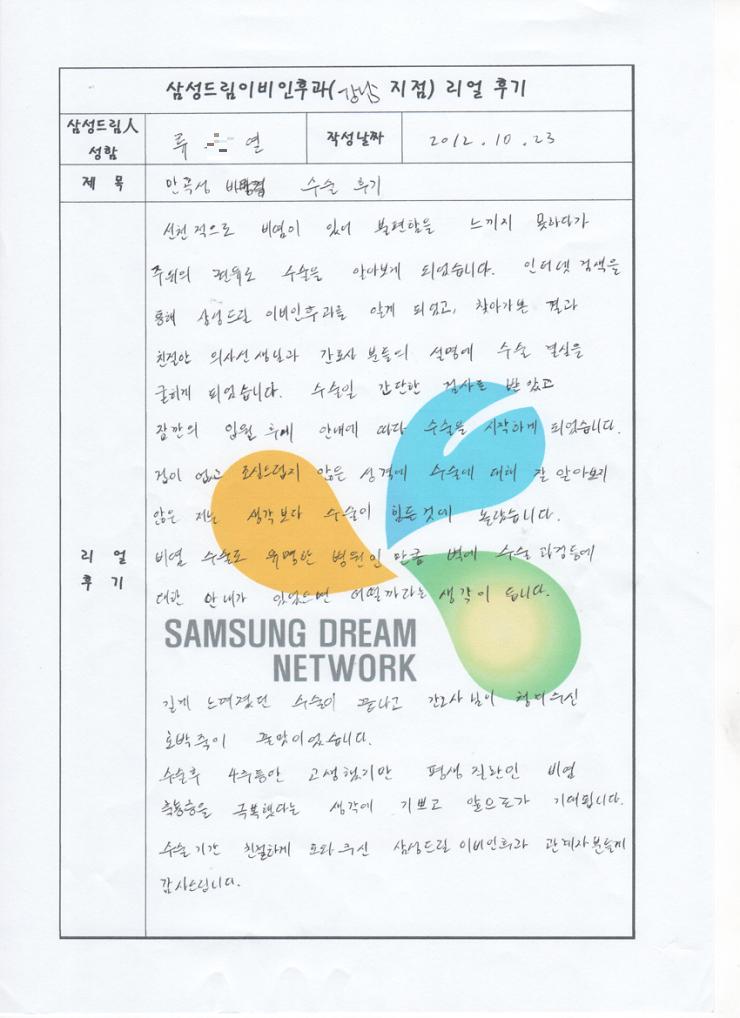 삼성드림이비인후과(강남 지점) 리얼 후기
삼성드림人
성함
류 열
작성날짜
2012.10.23
제 목
만곡성 수술 후기
리 얼
후 기
선천적으로 비염이 있어 불편함을 느끼지 못하다가
주위의 권유로 수술을 알아보게 되었습니다. 인터넷 검색을
통해 삼성드림 이비인후과를 알게 되었고, 찾아가본 결과
친절한 의사선생님과 간호사 분들의 설명에 수술 결심을
굳히게 되었습니다. 수술일 간단한 검사를 받았고
잠깐의 입원 후에 안내에 따라 수술을 시작하게 되었습니다.
겁이 없고 조심스럽지 않은 성격에 수술에 대해 잘 알아보지
않은 저는 생각보다 수술이 힘든것에 놀랐습니다.
비염 수술로 유명한 병원인 만큼 벽에 수술 과정등에
대한 안내가 있었으면 어떨까라는 생각이 듭니다.
SAMSUNG DREAM
NETWORK
길게 느껴졌던 수술이 끝나고 간호사님이 주신
호박죽이 꿀맛이었습니다.
수술후 4주동안 고생했지만 평생 질환인 비염
축농증을 극복했다는 생각에 기쁘고 앞으로가 기대됩니다.
수술기간 친절하게 주신 삼성드림 이비인후과 관계자분들께
감사드립니다.